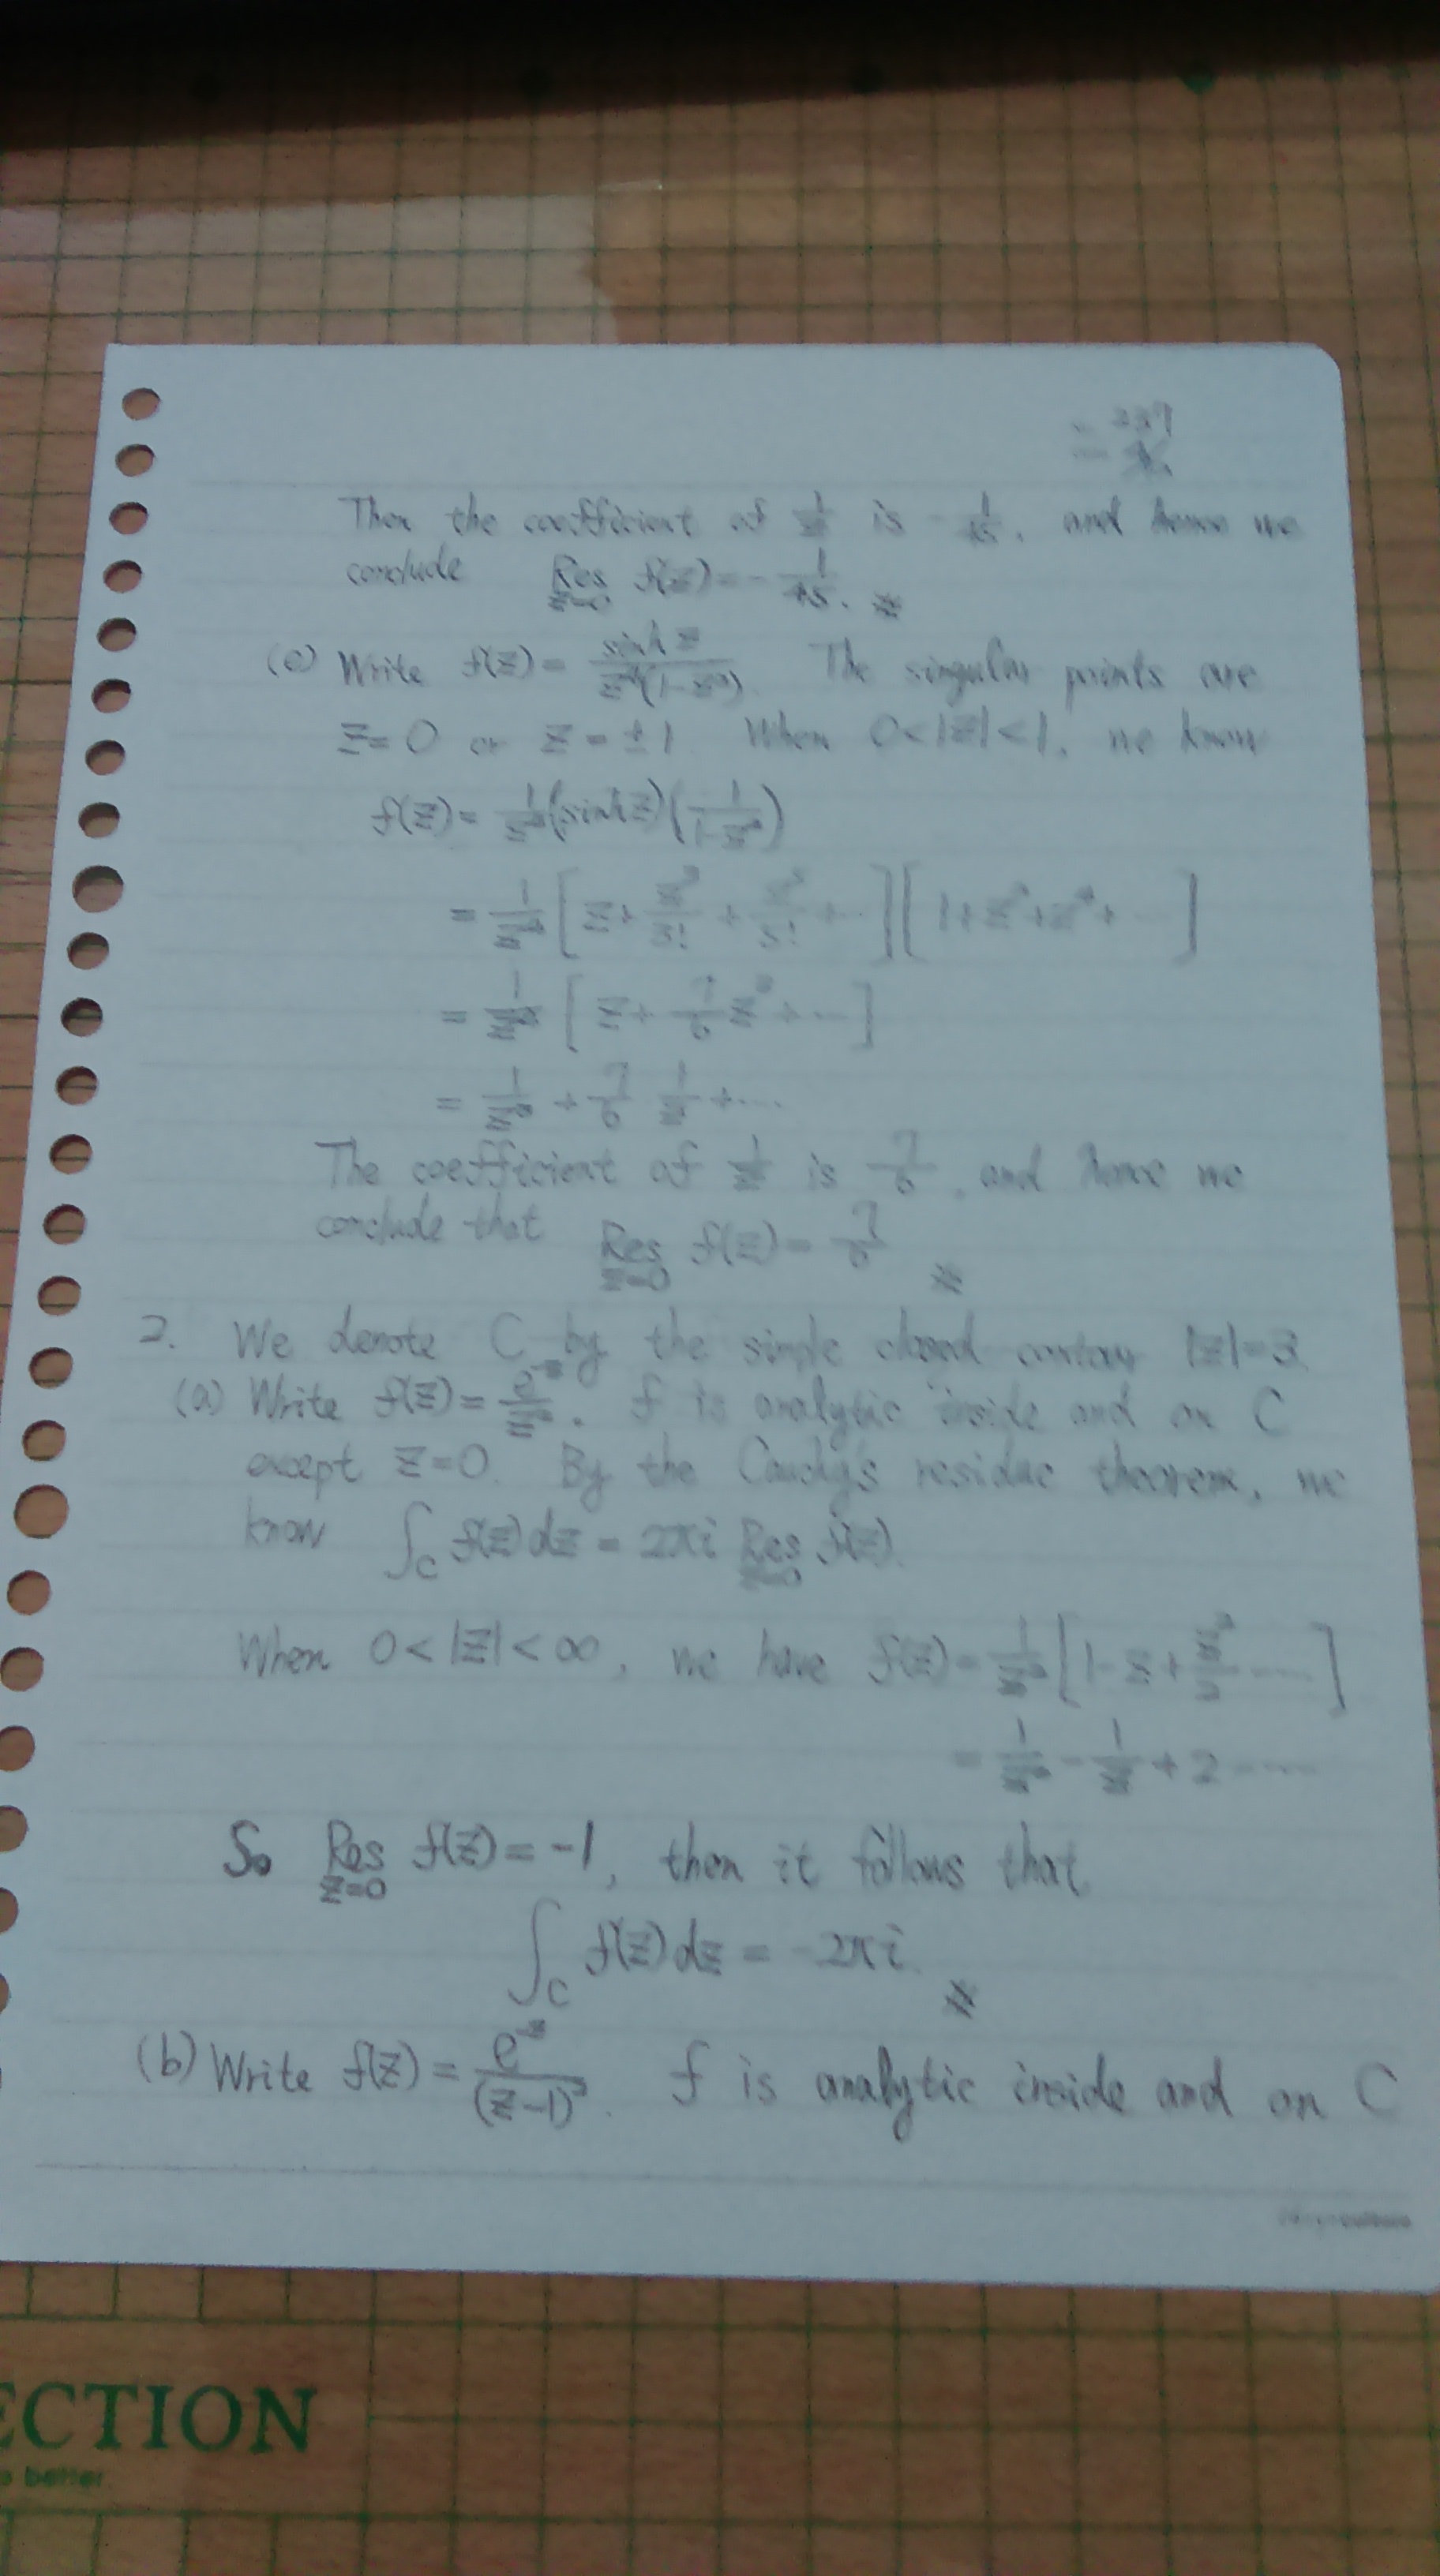 = 237
Then the coefficient of 1/z is -1/45, and hence we
conclude Res z=0 f(z)=-1/45. ※
(e) Write f(z)= sinh z / z⁴(1-z²). The singular points are
z=0 or z=±1. When 0<|z|<1, we know
f(z)= 1/z⁴ (sinh z)(1/(1-z²))
= 1/z⁴ [z+ z³/3! + z⁵/5! +...][1+z²+z⁴+...]
= 1/z⁴ [z+ 7/6 z³+...]
= 1/z³ + 7/6 1/z +...
The coefficient of 1/z is 7/6, and hence we
conclude that Res z=0 f(z)= 7/6 ※
2. We denote C by the simple closed contour |z|=3.
(a) Write f(z)= e^-z / z². f is analytic inside and on C
except z=0. By the Cauchy's residue theorem, we
know ∫_C f(z)dz = 2πi Res z=0 f(z).
When 0<|z|<∞, we have f(z)= 1/z² [1-z+ z²/2 ....]
= 1/z² - 1/z +2 .....
So Res z=0 f(z)=-1, then it follows that
∫_C f(z)dz = -2πi. ※
(b) Write f(z)= e^-z / (z-1)². f is analytic inside and on C
ECTION
better.